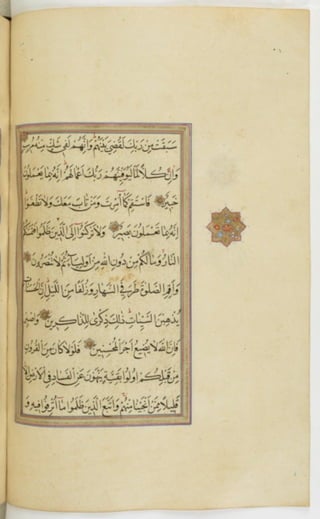 سَبَقَتْ مِنْ رَبِّكَ لَقُضِيَ بَيْنَهُمْ وَإِنَّهُمْ لَفِي شَكٍّ مِنْهُ مُرِيبٍ
وَإِنَّ كُلًّا لَمَّا لَيُوَفِّيَنَّهُمْ رَبُّكَ أَعْمَالَهُمْ إِنَّهُ بِمَا يَعْمَلُونَ
خَبِيرٌ فَاسْتَقِمْ كَمَا أُمِرْتَ وَمَنْ تَابَ مَعَكَ وَلَا تَطْغَوْا
إِنَّهُ بِمَا تَعْمَلُونَ بَصِيرٌ وَلَا تَرْكَنُوا إِلَى الَّذِينَ ظَلَمُوا فَتَمَسَّكُمُ
النَّارُ وَمَا لَكُمْ مِنْ دُونِ اللَّهِ مِنْ أَوْلِيَاءَ ثُمَّ لَا تُنْصَرُونَ
وَأَقِمِ الصَّلٰوةَ طَرَفَيِ النَّهَارِ وَزُلَفًا مِنَ اللَّيْلِ إِنَّ الْحَسَنَاتِ
يُذْهِبْنَ السَّيِّئَاتِ ذٰلِكَ ذِكْرَى لِلذَّاكِرِينَ وَاصْبِرْ
فَإِنَّ اللَّهَ لَا يُضِيعُ أَجْرَ الْمُحْسِنِينَ فَلَوْلَا كَانَ مِنَ الْقُرُونِ
مِنْ قَبْلِكُمْ أُولُوا بَقِيَّةٍ يَنْهَوْنَ عَنِ الْفَسَادِ فِي الْأَرْضِ إِلَّا
قَلِيلًا مِمَّنْ أَنْجَيْنَا مِنْهُمْ وَاتَّبَعَ الَّذِينَ ظَلَمُوا مَا أُتْرِفُوا فِيهِ وَ